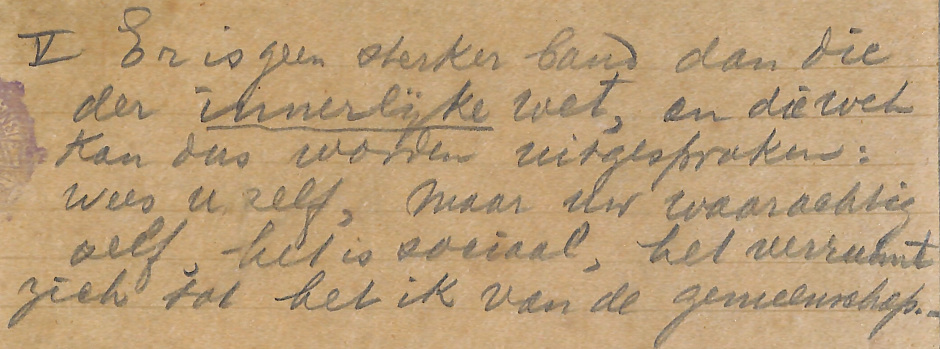 V Er is geen sterker band dan die
der innerlijke wet, en die wet
kan dus worden uitgesproken:
wees u zelf, maar uw waarachtig
zelf, het is sociaal, het verruimt
zich tot het ik van de gemeenschap.